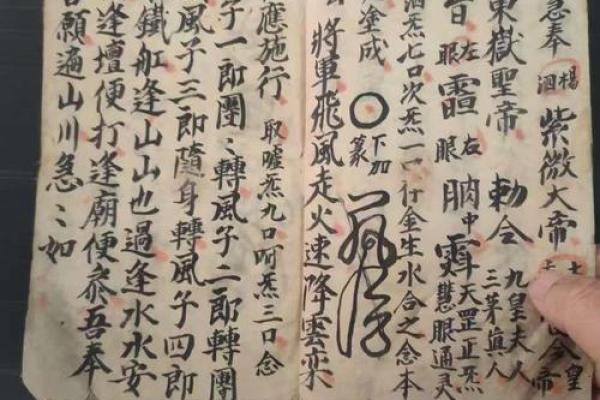 急奉 楊泗 紫微大帝
東嶽聖帝 勅令 九皇夫人 三茅真人
左眼 右眼 中 天罡正炁 慧眼通灵
炁七口次炁一口 金生水合之念本
塗成 下加篆
將軍飛風走火速降雲栾
應施行 取嘘炁九口呵炁三口念
子一郎團〻轉風子二郎轉團
風子三郎隨身轉風子四郎
鐵舡逢山山也過逢水水安
逢壇便打逢廟便叅吾奉
願遍山川急〻如